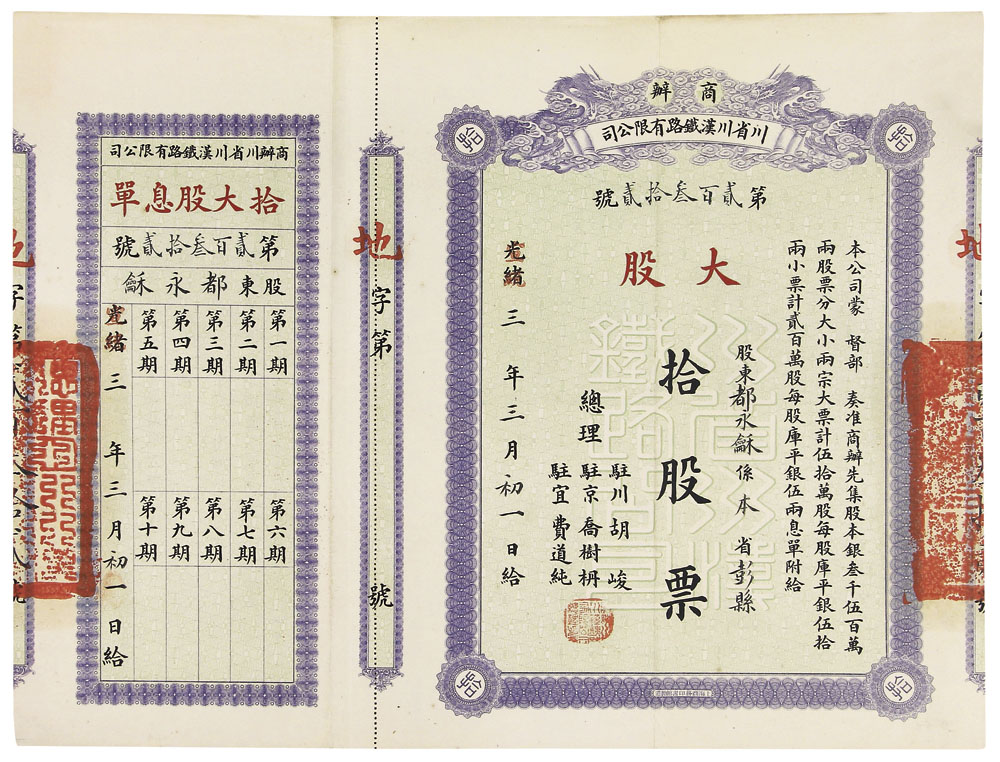 商辦
川省川漢鐵路有限公司
第貳百叁拾貳號
本公司蒙　督部　奏准商辦先集股本銀叁千伍百萬
兩股票分大小兩宗大票計伍拾萬股每股庫平銀伍拾
兩小票計貳百萬股每股庫平銀伍兩息單附給
股東都永龢係本　省彭縣
大股
拾股票
總理
駐川胡　峻
駐京喬樹枬
駐宜費道純
光緒三　年三月初一日給
地字第　號
商辦川省川漢鐵路有限公司
拾大股息單
第貳百叁拾貳號
股東都永龢
第一期
第二期
第三期
第四期
第五期
第六期
第七期
第八期
第九期
第十期
光緒三　年三月初一日給
地字第